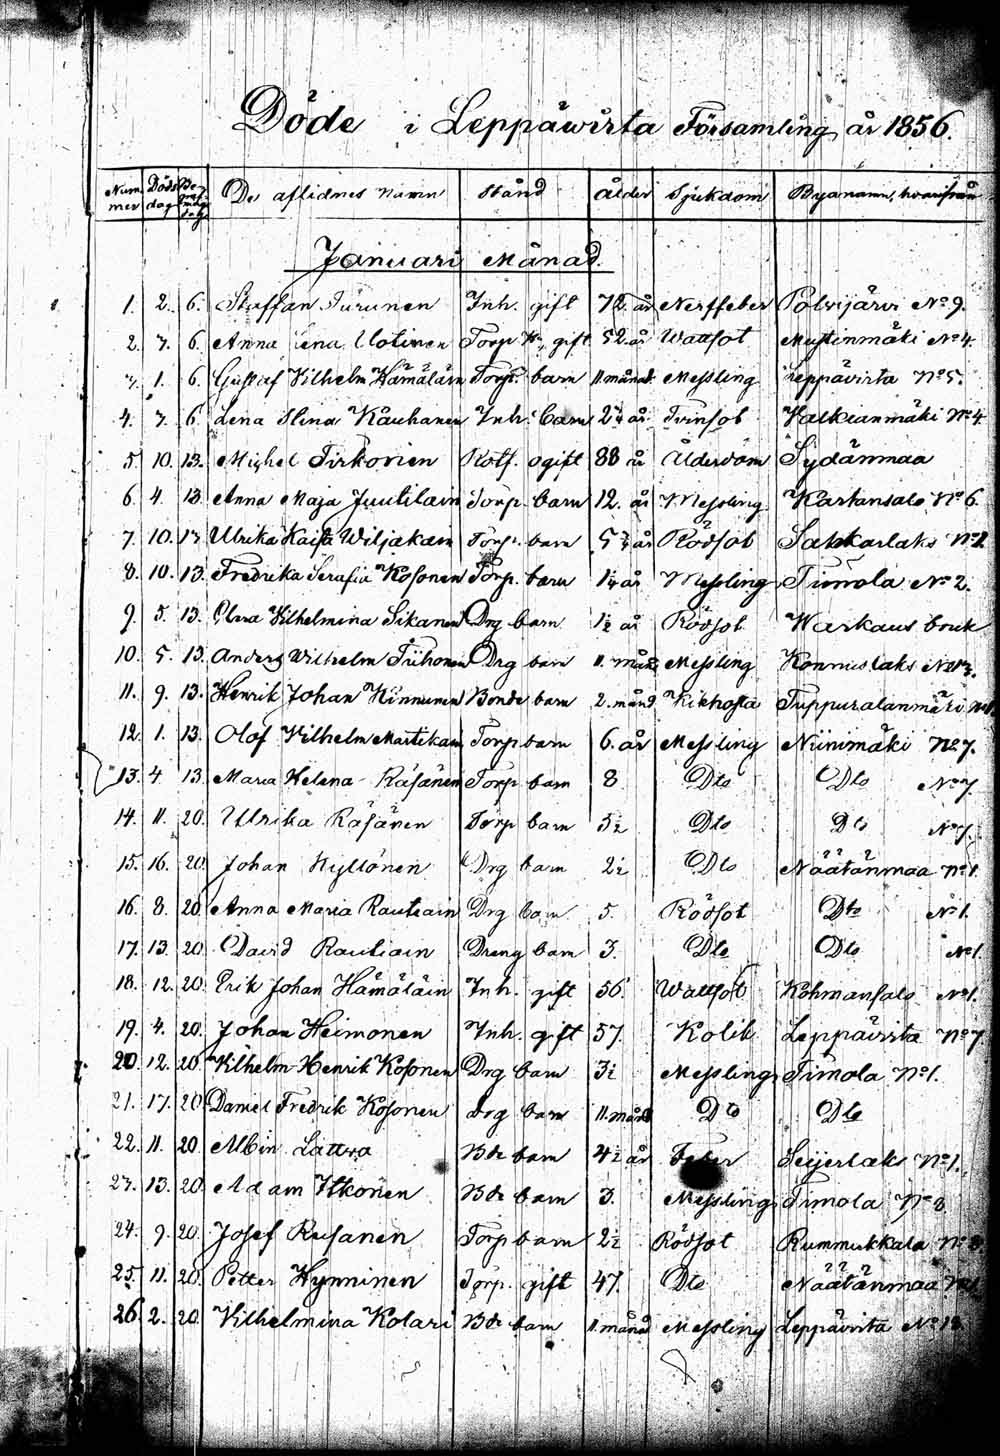 Döde i Leppäwirta Församling år 1856.
Num̄mer Döds dag De aflidnes namn Stånd Ålder Sjukdom Byanamn, hvarifrån
Januari Månad.
1. 2. 6. Staffan Turunen Inh. gift 72 år Nerffeber Polvijärvi No 9.
2. 7. 6. Anna Lena Uotinen Torp. gift 52 år Wattsot Mustinmäki No 4.
1. 6. Gustaf Vilhelm Hämäläin Torp. barn 11 månad Messling Leppävirta No 5.
4. 7. 6. Lena Stina Kauhanen Inh. barn år Tvinsot Valkianmäki No 4
5. 10. 13. Michel Tirkonen Rotf. ogift 88 år Ålderdom Sydänmaa
6. 4. 13. Anna Maja Juutilain Torp. barn 12. år Messling Kartansalo No 6.
7. 10. 13 Ulrika Kaisa Wiljakain Torp. barn år Rödsot Sahkarlaks No 2
8. 10. 13. Fredrika Serafia Kosonen Torp. barn 1¼ år Messling Timola No 2.
9. 5. 13. Clara Vilhelmina Sikanen Drg barn 1½ år Rödsot Warkaus bruk
10. 5. 13. Anders Wilhelm Tiihonen Drg barn 11. mån Messling Konnuslaks
11. 9. 13. Henrik Johan Kinnunen Bonde barn 2. månd Kikhosta Tuppuralanmäki
12. 1. 13. Olof Vilhelm Martikain Torp barn 6. år Messling Niinimäki No 7.
13. 4 13. Maria Helena Räsänen Torp barn 8 Dto Dto No 7.
14. 11. 20. Ulrika Räsänen Torp barn 5½ Dto Dto No 7.
15. 16. 20. Johan Kyllönen Drg barn 2½ Dto Näätänmaa No 1.
16. 8. 20. Anna Maria Rautiain Drg barn 5. Rödsot Dto No 1.
17. 13. 20 David Rautiain Dreng barn 3. Dto Dto No 1.
18. 12. 20. Erik Johan Hämäläin Inh. gift 56. Wattsot Kohmansalo No 1.
19. 4. 20. Johan Heimonen Inh. gift 57. Kolik Leppävirta No 7
20. 12. 20 Vilhelm Henrik Kosonen Drg barn 3½ Messling Timola No 1.
21. 17. 20 Daniel Fredrik Kosonen Drg barn 11. månd Dto Dto
22. 11. 20. Albin Lättra Bde barn 4½ år Feber Seijerlaks No 1.
23. 13. 20 Adam Itkonen Bde barn 3. Messling Timola No 3
24. 9. 20. Josef Rusanen Torp barn 2½ Rödsot Rummukkala No 3.
25. 11. 20. Petter Hynninen Torp. gift 47. Dto Näätänmaa
26. 2. 20. Vilhelmina Kolari Bde barn 11. månad Messling Leppävirta No 12.